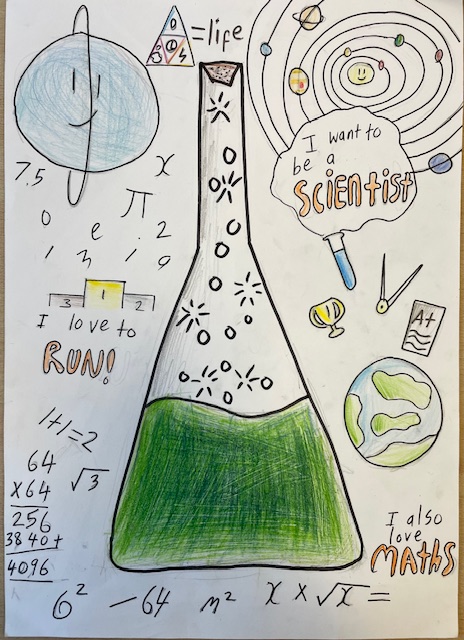 =life
I want to
be a
SCIENTIST
7.5
x
π
0
e
. 2
A+
3 1 2
I love to
RUN!
1+1=2
64
x64
256
3840+
4096
√3
I also
love
MATHS
6² -64 m² x x √x =